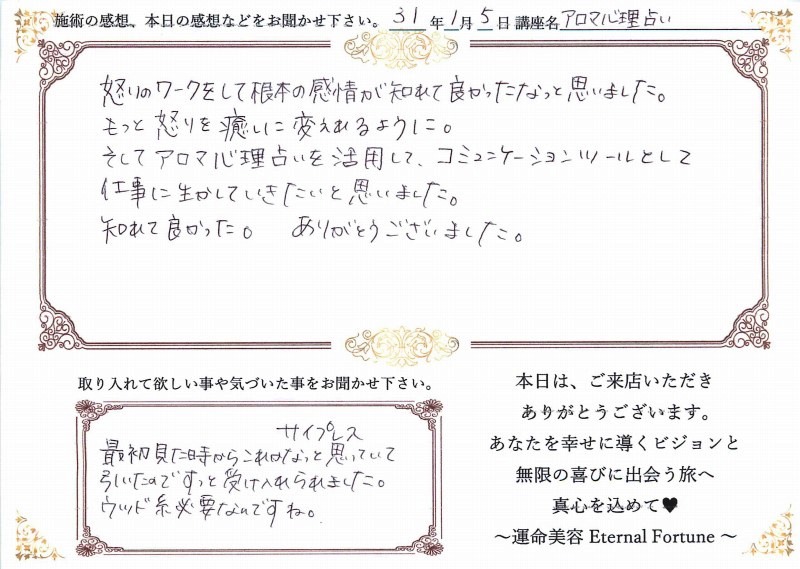 施術の感想、本日の感想などをお聞かせ下さい。 31年1月5日 講座名 アロマ心理占い
怒りのワークをして根本の感情が知れて良かったなっと思いました。
もっと怒りを癒しに変えれるように。
そしてアロマ心理占いを活用して、コミュニケーションツールとして
仕事に生かしていきたいと思いました。
知れて良かった。 ありがとうございました。
取り入れて欲しい事や気づいた事をお聞かせ下さい。
サイプレス
最初見た時からこれかなっと思っていて
引いたのですっと受け入れられました。
ウッド系必要なんですね。
本日は、ご来店いただき
ありがとうございます。
あなたを幸せに導くビジョンと
無限の喜びに出会う旅へ
真心を込めて♥
～運命美容 Eternal Fortune～